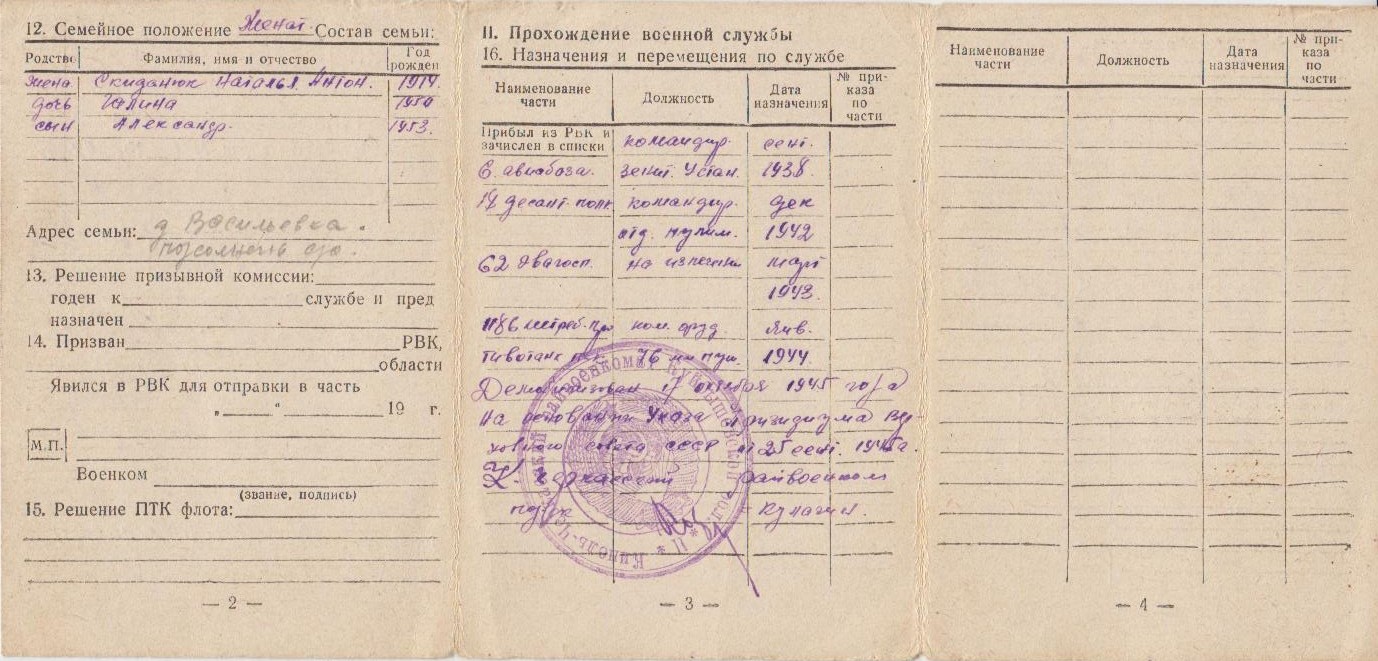 12. Семейное положение Женат. Состав семьи:
Родство Фамилия, имя и отчество Год рожден
жена Скиданюк Наталья Антон. 1914.
дочь Галина 1950
сын Александр. 1953.
Адрес семьи: д Васильевка.
13. Решение призывной комиссии:
годен к службе и пред
назначен
14. Призван РВК,
области
Явился в РВК для отправки в часть
„ “ 19 г.
М.П.
Военком
(звание, подпись)
15. Решение ПТК флота:
— 2 —
II. Прохождение военной службы
16. Назначения и перемещения по службе
Наименование части Должность Дата назначения № приказа по части
Прибыл из РВК и зачислен в списки командир. сент.
6. авиабоза. зенит. Устан. 1938.
14 десант. полк командир. дек
отд. пулим. 1942
62 эвагосп. на излечении март
1943.
1186 истреб. про ком. оруд. янв.
тивотанк. 76 мм пуш. 1944
Демобилизован 17 октября 1945 года
На основании Указа Призидиума Вер
ховного совета СССР от 25 сент. 1945г.
К. Черкасский райвоенком
Кулагин.
Кинель-Черкасский райвоенкомат Куйбышевской обл.
— 3 —
Наименование части Должность Дата назначения № приказа по части
— 4 —